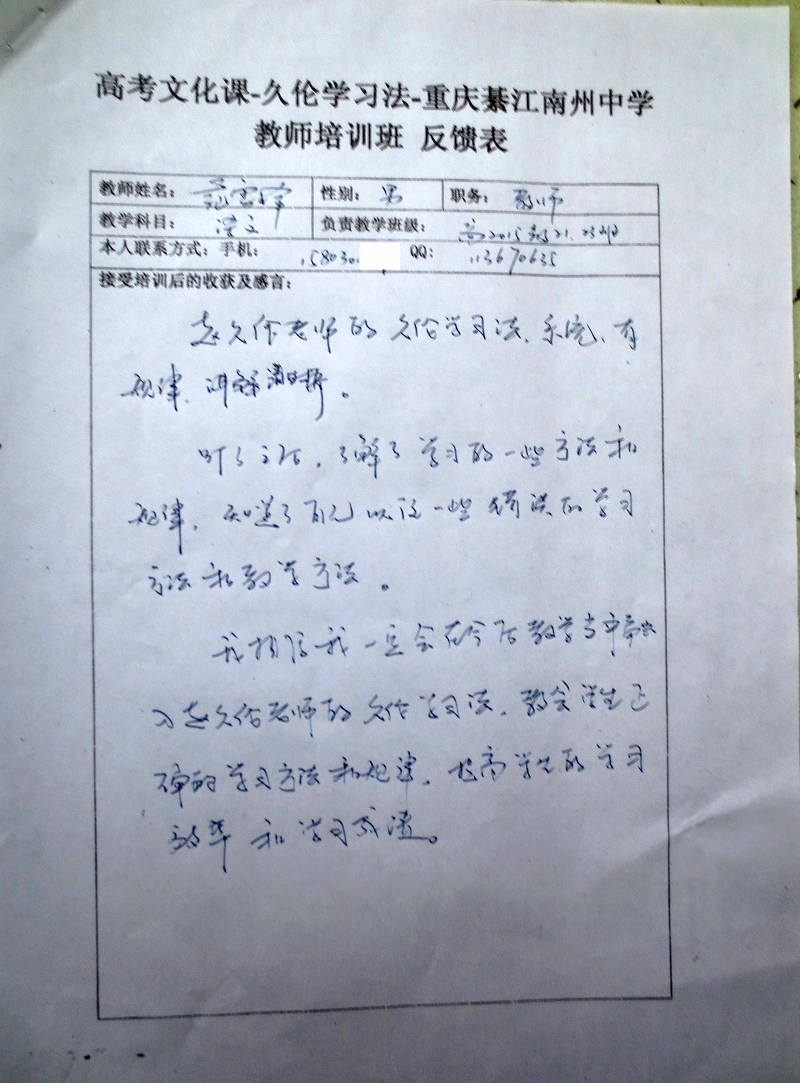 高考文化课-久伦学习法-重庆綦江南州中学
教师培训班 反馈表
教师姓名： 性别：男 职务：教师
教学科目：语文 负责教学班级：高2015级21.23班
本人联系方式：手机：158030 QQ：113670635
接受培训后的收获及感言：
赵久伦老师的久伦学习法，系统、有
规律，讲解清晰。
听了之后，了解了学习的一些方法和
规律，知道了自己以往一些错误的学习
方法和教学方法。
我相信我一定会在今后教学当中
入赵久伦老师的久伦学习法，教会学生正
确的学习方法和规律，提高学生的学习
效率和学习成绩。